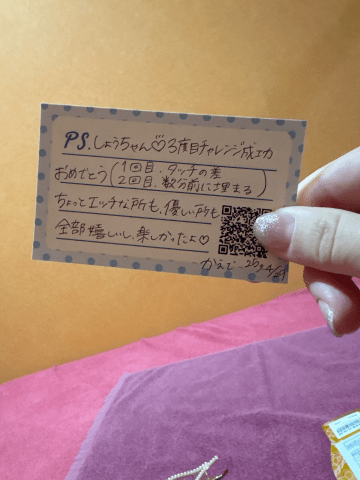 PS.しょうちゃん♡3度目チャレンジ成功
おめでとう(1回目.タッチの差
2回目.数分前に埋まる)
ちょっとエッチな所も、優しい所も
全部嬉しいし、楽しかったよ♡
かえで